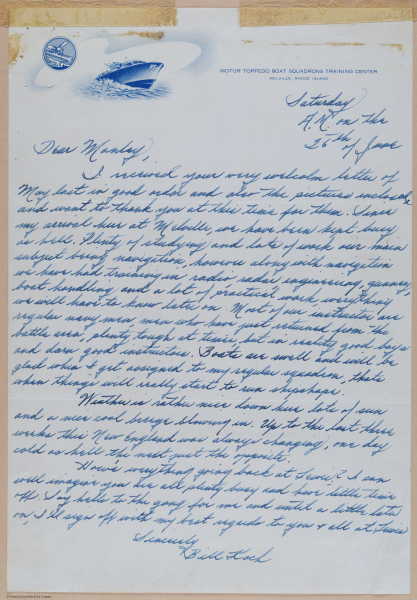 MOTOR TORPEDO BOAT SQUADRONS TRAINING CENTER
MELVILLE, RHODE ISLAND
Saturday
A.M. on the
26th of June
Dear Manley,
I received your very welcom letter of
May last in good order and also the pictures enclosed
and want to thank you at this time for them. Since
my arrival here at Melville, we have been kept busy
as hell. Plenty of studying and lots of work our main
subject being navigation, however along with navigation
we have had training in radio, radar, engineering, gunnery,
boat handling and a lot of practical work everything
we will have to know later on. Most of our instructors are
regular navy men, men who have just returned from the
battle area, plenty tough at times, but in reality good boys
and darn good instructors. Boats are swell and will be
glad when I get assigned to my regular squadron, thats
when things will really start to run shipshape.
Weather is rather nice down here lots of sun
and a nice cool breeze blowing in. Up to the last three
weeks this New England was always changing, one day
cold as hell the next just the opposite.
How's everything going back at
I can
well imagine you are all plenty busy and have little time
off. Say hello to the gang for me and until a little later
on, I'll sign off with my best regards to you & all at
Sincerely
Bill Koch